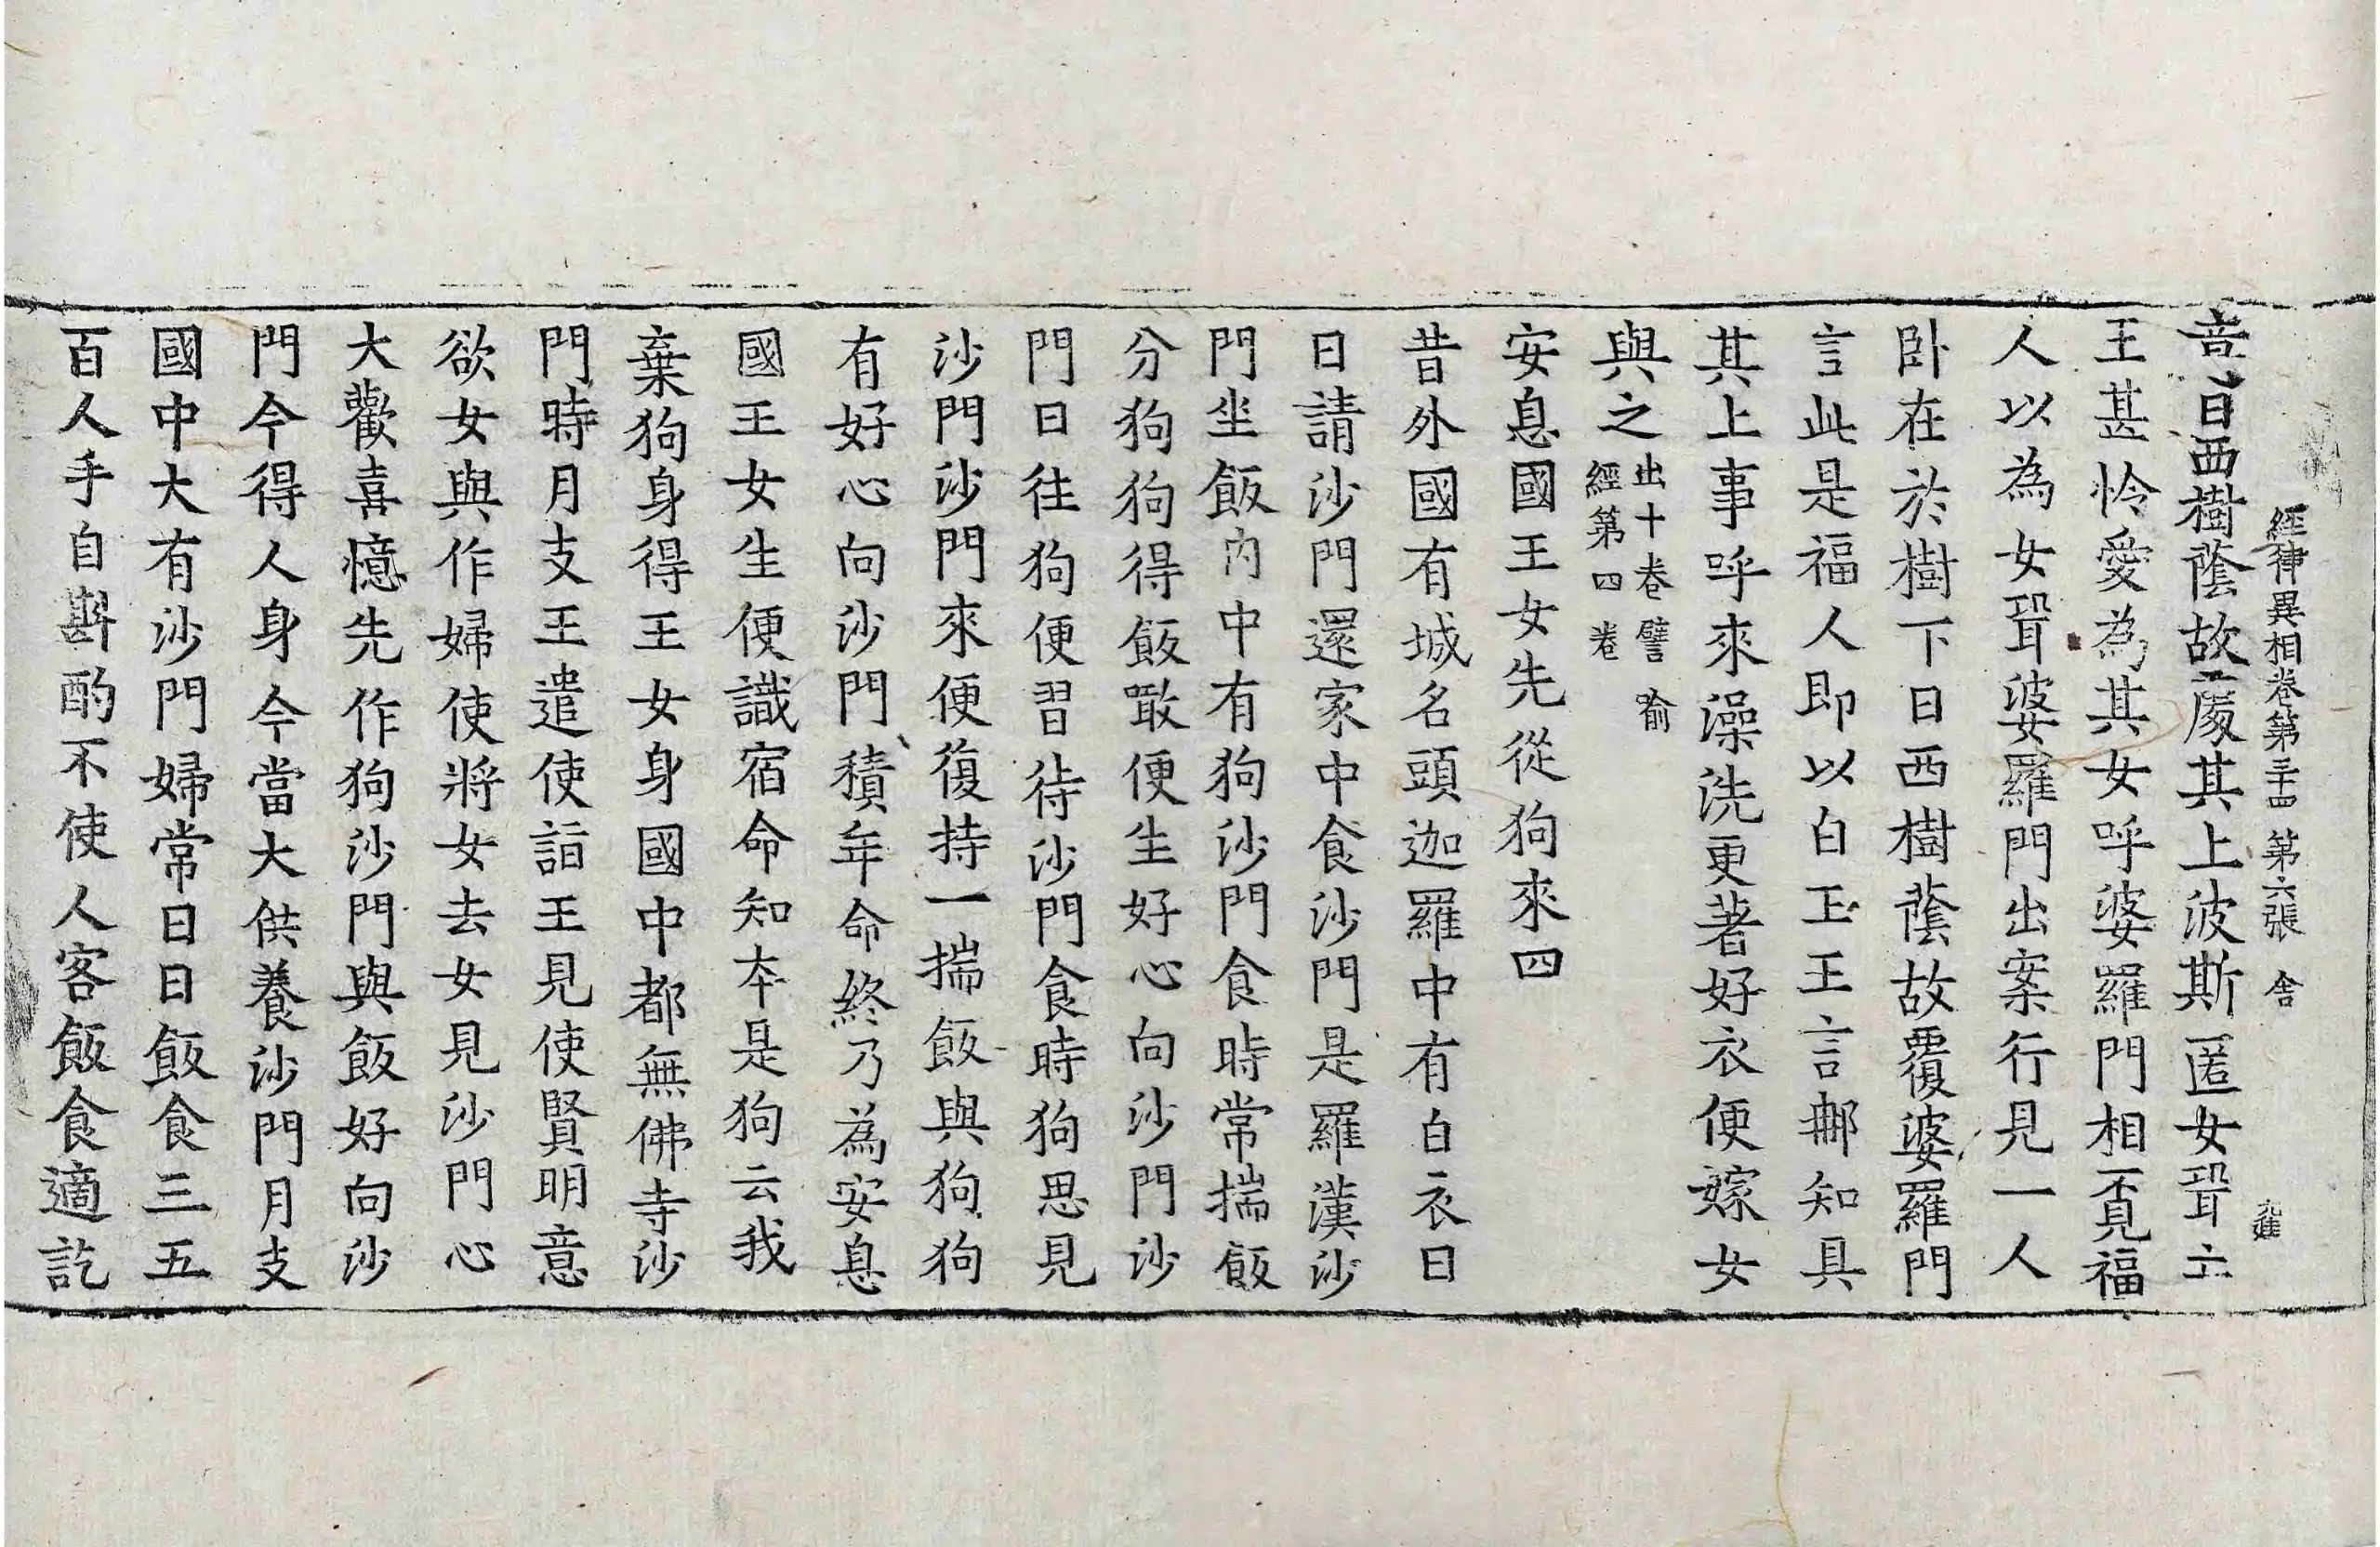 經律異相卷第三十四 第六張 舍
言日西樹蔭故處其上波斯匿女壻立
王甚怜愛為其女呼婆羅門相覓福
人以為女壻婆羅門出案行見一人
卧在於樹下日西樹蔭故覆婆羅門
言此是福人即以白王王言那知具
其上事呼來澡洗更著好衣便嫁女
與之出十卷譬喻
經第四卷
安息國王女先從狗來四
昔外國有城名頭迦羅中有白衣日
日請沙門還家中食沙門是羅漢沙
門坐飯內中有狗沙門食時常揣飯
分狗狗得飯噉便生好心向沙門沙
門日往狗便習待沙門食時狗思見
沙門沙門來便復持一揣飯與狗狗
有好心向沙門積年命終乃為安息
國王女生便識宿命知本是狗云我
棄狗身得王女身國中都無佛寺沙
門時月支王遣使詣王見使賢明意
欲女與作婦使將女去女見沙門心
大歡喜憶先作狗沙門與飯好向沙
門今得人身今當大供養沙門月支
國中大有沙門婦常日日飯食三五
百人手自斟酌不使人客飯食適訖